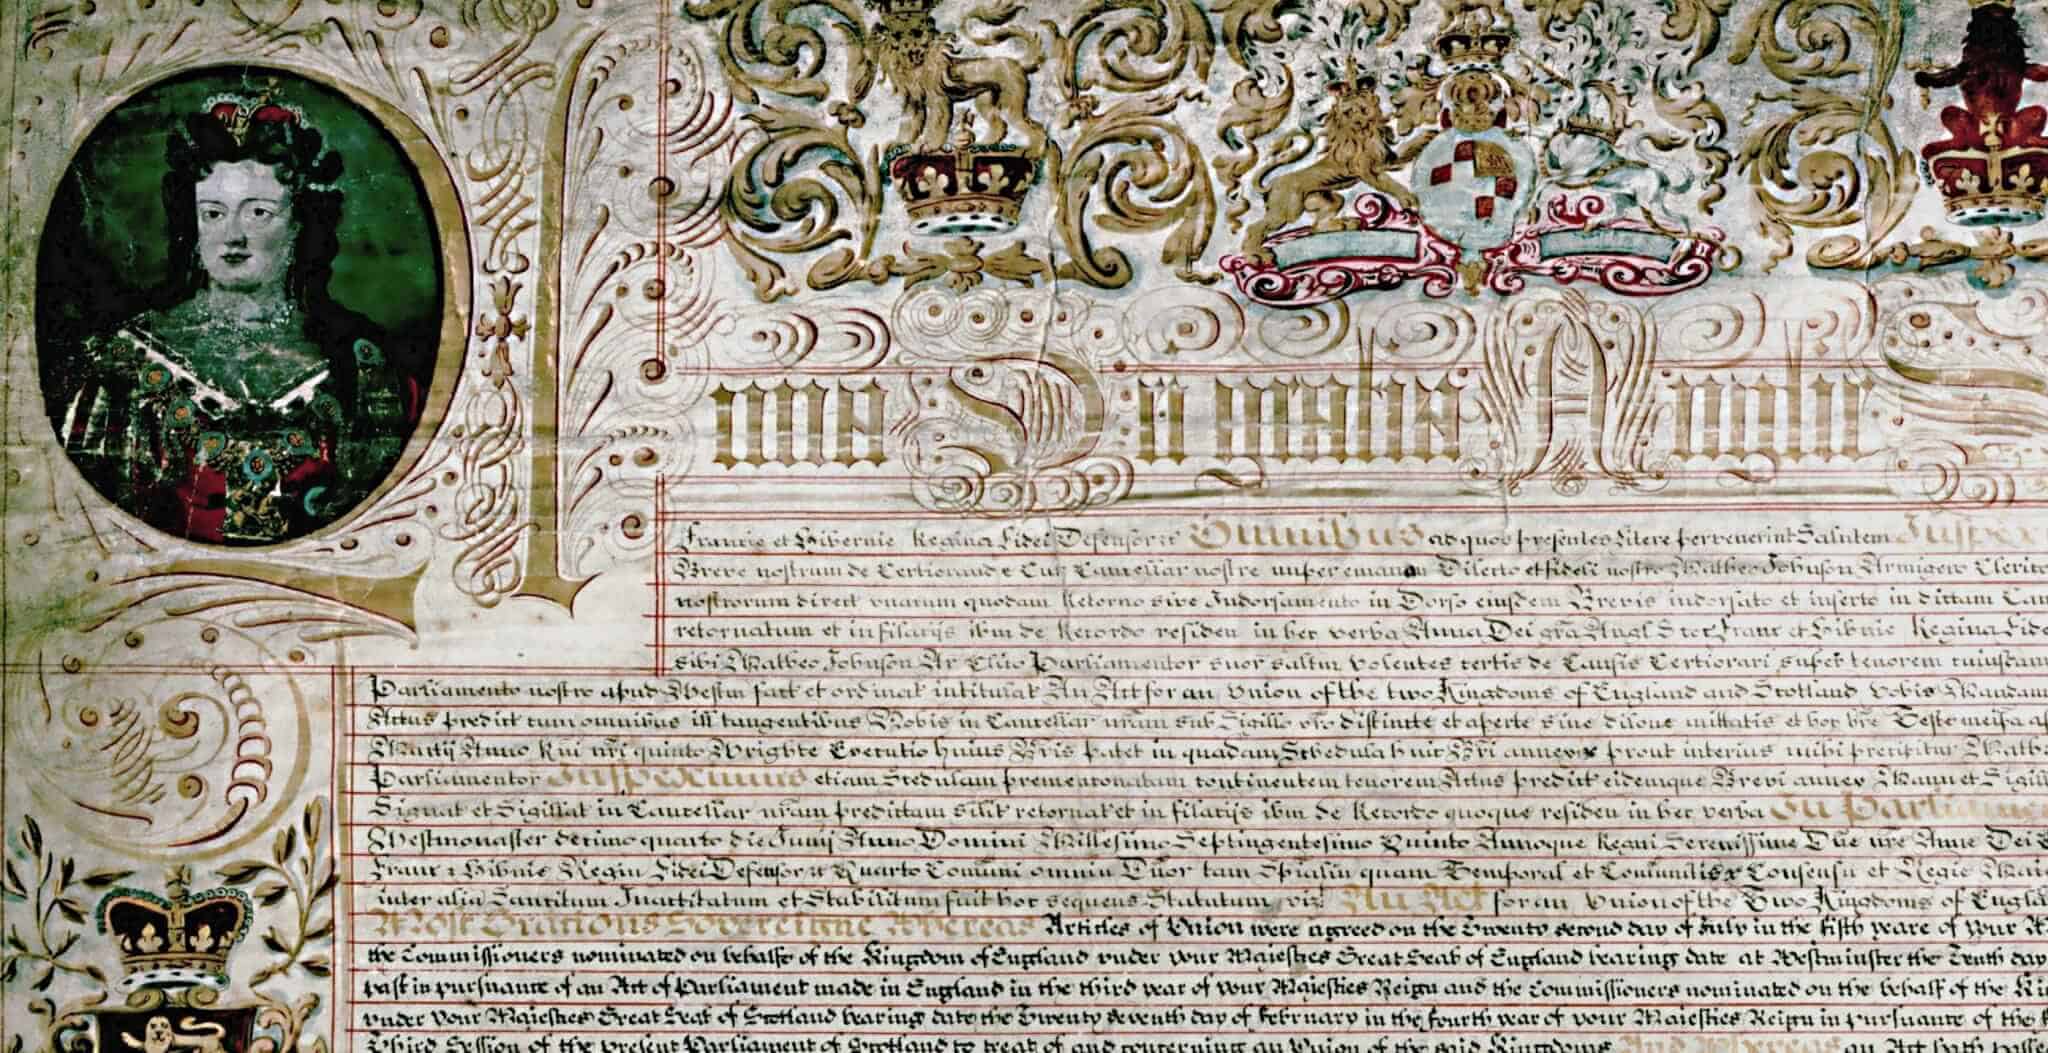 Anna Dei gratia Anglie S
Francie et Hibernie Regina Fidei Defensor &c Omnibus ad quos presentes Litere pervenerint Salutem Inspex
Breve nostrum de Certiorand e Cur Cancellar nostre nuper emanan Dilecto et fideli nostro Matheo Johnson Armigero Clerico
nostrorum direct unacum quodam Retorno sive Indorsamento in Dorso eiusdem Brevis indorsato et inserto in dictam Can
retornatum et in filaciis ibm de Recordo residen in hec verba Anna Dei gra Angl Scot Franc et Hibnie Regina Fidei
sibi Matheo Johnson Ar Clico Parliamentor suor saltm Volentes certis de Causis Certiorari super tenorem cuiusdam
Parliamento nostro apud Westm fact et ordinat intitulat An Act for an Union of the two Kingdoms of England and Scotland Vobis Mandam
Actus predict cum omnibus ill tangentibus Nobis in Cancellar nram sub Sigillo vro distincte et aperte sine dilone mittatis et hoc bre Teste meipsa ap
Martij Anno Rni nri quinto Wrighte Executio huius Bris patet in quadam Schedula huic Bri annex prout interius mihi precipitur Math
Parliamentor Inspeximus etiam Scedulam prementonatam continentem tenorem Actus predict eidemque Brevi annex Manu et Sigill
Signat et Sigillat in Cancellar nram predictam silit retornat et in filaciis ibm de Recordo quoque residen in hec verba In Parliame
Westmonaster decimo quarto die Junij Anno Domini Millesimo Septingentesimo Quinto Annoque Regni Serenissime Dne nre Anne Dei
Franc & Hibnie Regin Fidei Defensor &c Quarto Comuni omniu Dnor tam Spialiu quam Temporal et Comunitat Consensu et Regie Maie
inter alia Sancitum Inactitatum et Stabilitum fuit hoc sequens Statutum viz An Act for an Union of the Two Kingdoms of Engla
Most Gracious Sovereigne Whereas Articles of Union were agreed on the Twenty second day of July in the fifth yeare of your
the Commissioners nominated on behalfe of the Kingdom of England under your Majesties Great Seal of England bearing date at Westminster the Tenth day
past in pursuance of an Act of Parliament made in England in the third year of your Majesties Reign and the Commissioners nominated on the behalf of the
under your Majesties Great Seal of Scotland bearing date the Twenty seventh day of February in the fourth year of your Majesties Reign in pursuance of the
Third Session of the present Parliament of Scotland to treat of and concerning an Union of the said Kingdoms And Whereas an Act hath